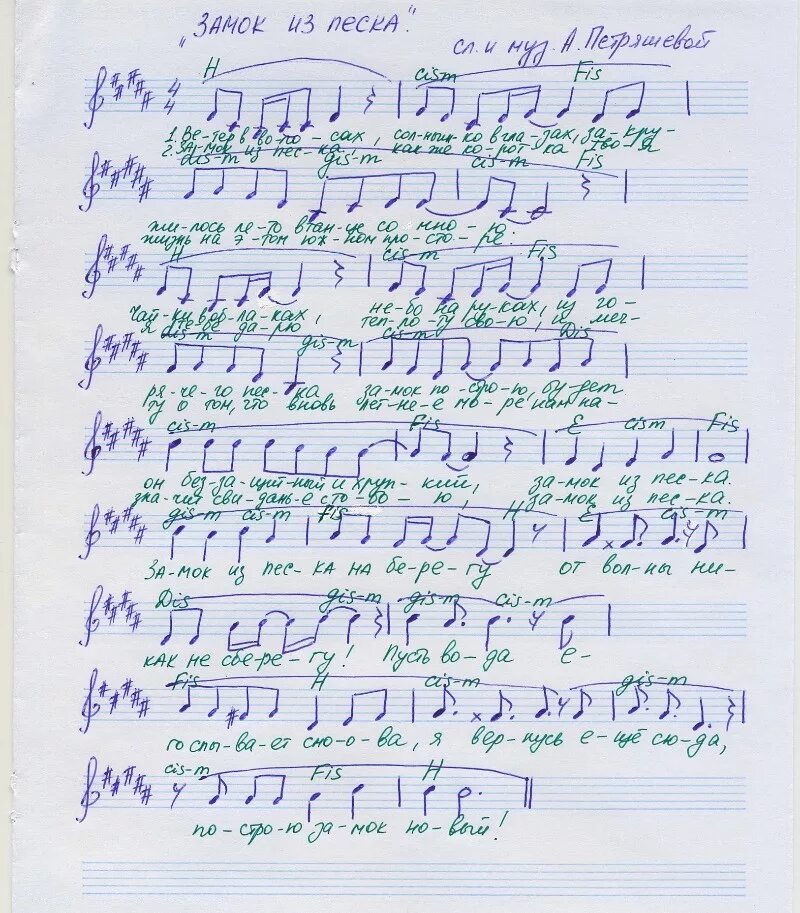 „ЗАМОК ИЗ ПЕСКА."
сл. и муз. А. Петряшевой
H cism Fis
4 4
1. Ве-тер в во-ло-сах, солныш-ко в гла-зах, за-кру-
2. ЗА-мок из пес-ка, как же ко-рот-ка твоя
dis-m gis-m cis-m Fis
жи-лось ле-то в тан-це со мно-ю.
жизнь на э-том юж-ном про-сто-ре.
H cis-m Fis
Чай-ки в об-ла-ках, не-бо на ру-ках, из го-
я те-бе да-рю теп-ло-ту сво-ю, и меч-
dis-m gis-m cis-m Dis
ря-че-го пес-ка за-мок по-стро-ю, бу-дет
ту о том, что вновь лет-не-е мо-ре нам на-
cis-m Fis E cism Fis
он без-за-щит-ный и хруп-кий, за-мок из пес-ка.
зна-чит сви-дань-е с то-бо-ю, за-мок из пес-ка.
gis-m cis-m Fis H E cis-m
ЗА-мок из пес-ка на бе-ре-гу от вол-ны ни-
Dis gis-m gis-m cis-m
как не сбе-ре-гу! Пусть во-да е-
Fis H cis-m gis-m
го смы-ва-ет сно-о-ва, я вер-нусь е-щё сю-да,
cis-m Fis H
по-стро-ю за-мок но-вый!